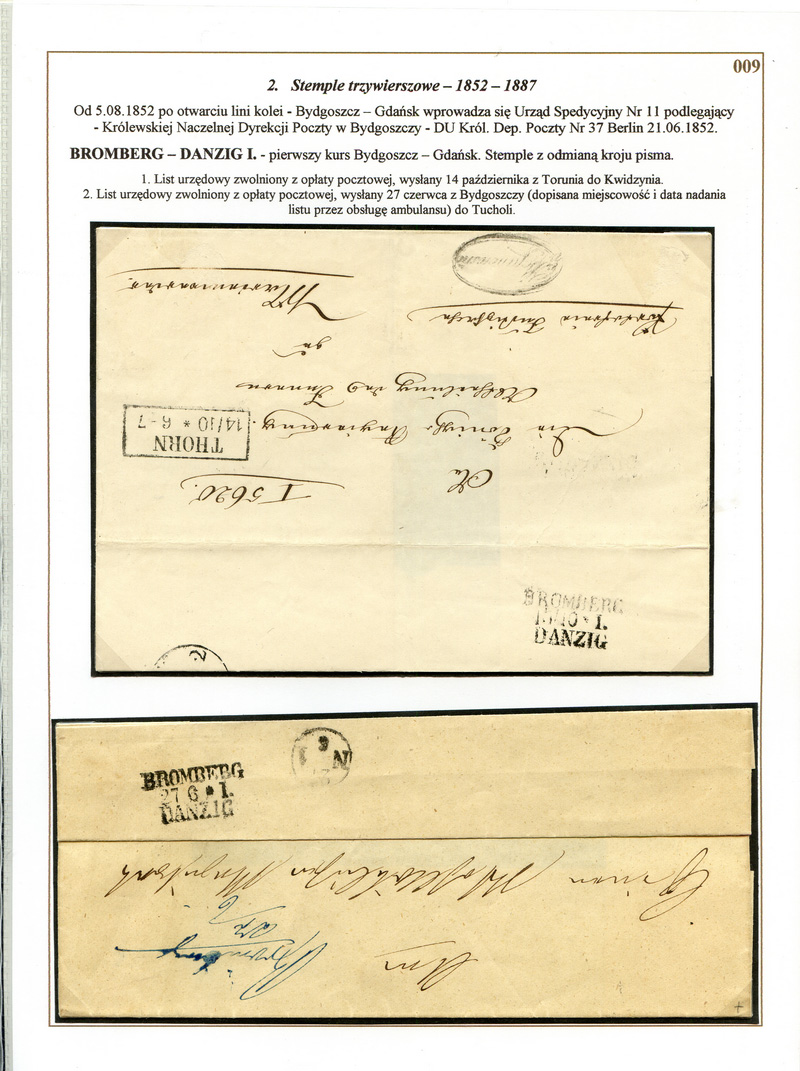 009
2. Stemple trzywierszowe – 1852 – 1887
Od 5.08.1852 po otwarciu lini kolei - Bydgoszcz – Gdańsk wprowadza się Urząd Spedycyjny Nr 11 podlegający
- Królewskiej Naczelnej Dyrekcji Poczty w Bydgoszczy - DU Król. Dep. Poczty Nr 37 Berlin 21.06.1852.
BROMBERG – DANZIG I. - pierwszy kurs Bydgoszcz – Gdańsk. Stemple z odmianą kroju pisma.
1. List urzędowy zwolniony z opłaty pocztowej, wysłany 14 października z Torunia do Kwidzynia.
2. List urzędowy zwolniony z opłaty pocztowej, wysłany 27 czerwca z Bydgoszczy (dopisana miejscowość i data nadania
listu przez obsługę ambulansu) do Tucholi.
Marienwerder
zu
THORN
14/10 * 6-7
An
I 5620.
BROMBERG
* I.
DANZIG
2
BROMBERG
27 6 * I.
DANZIG
Bromberg
27/6